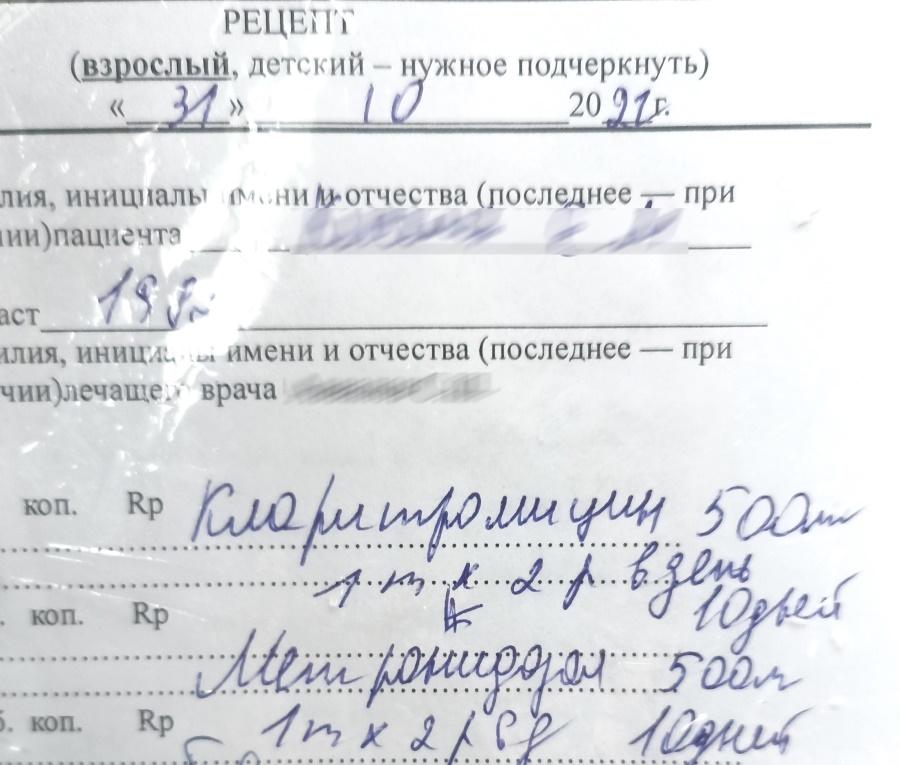 РЕЦЕПТ
(взрослый, детский – нужное подчеркнуть)
« 31 » 10 2021г.
лия, инициалы имени и отчества (последнее — при
ии)пациента
аст
илия, инициалы имени и отчества (последнее — при
чии)лечащего врача
коп. Rp Кларитромицин 500мг
1 т х 2 р в день
10 дней
. коп. Rp
Метронидазол 500мг
б. коп. Rp 1т х 2 р в д 10 дней